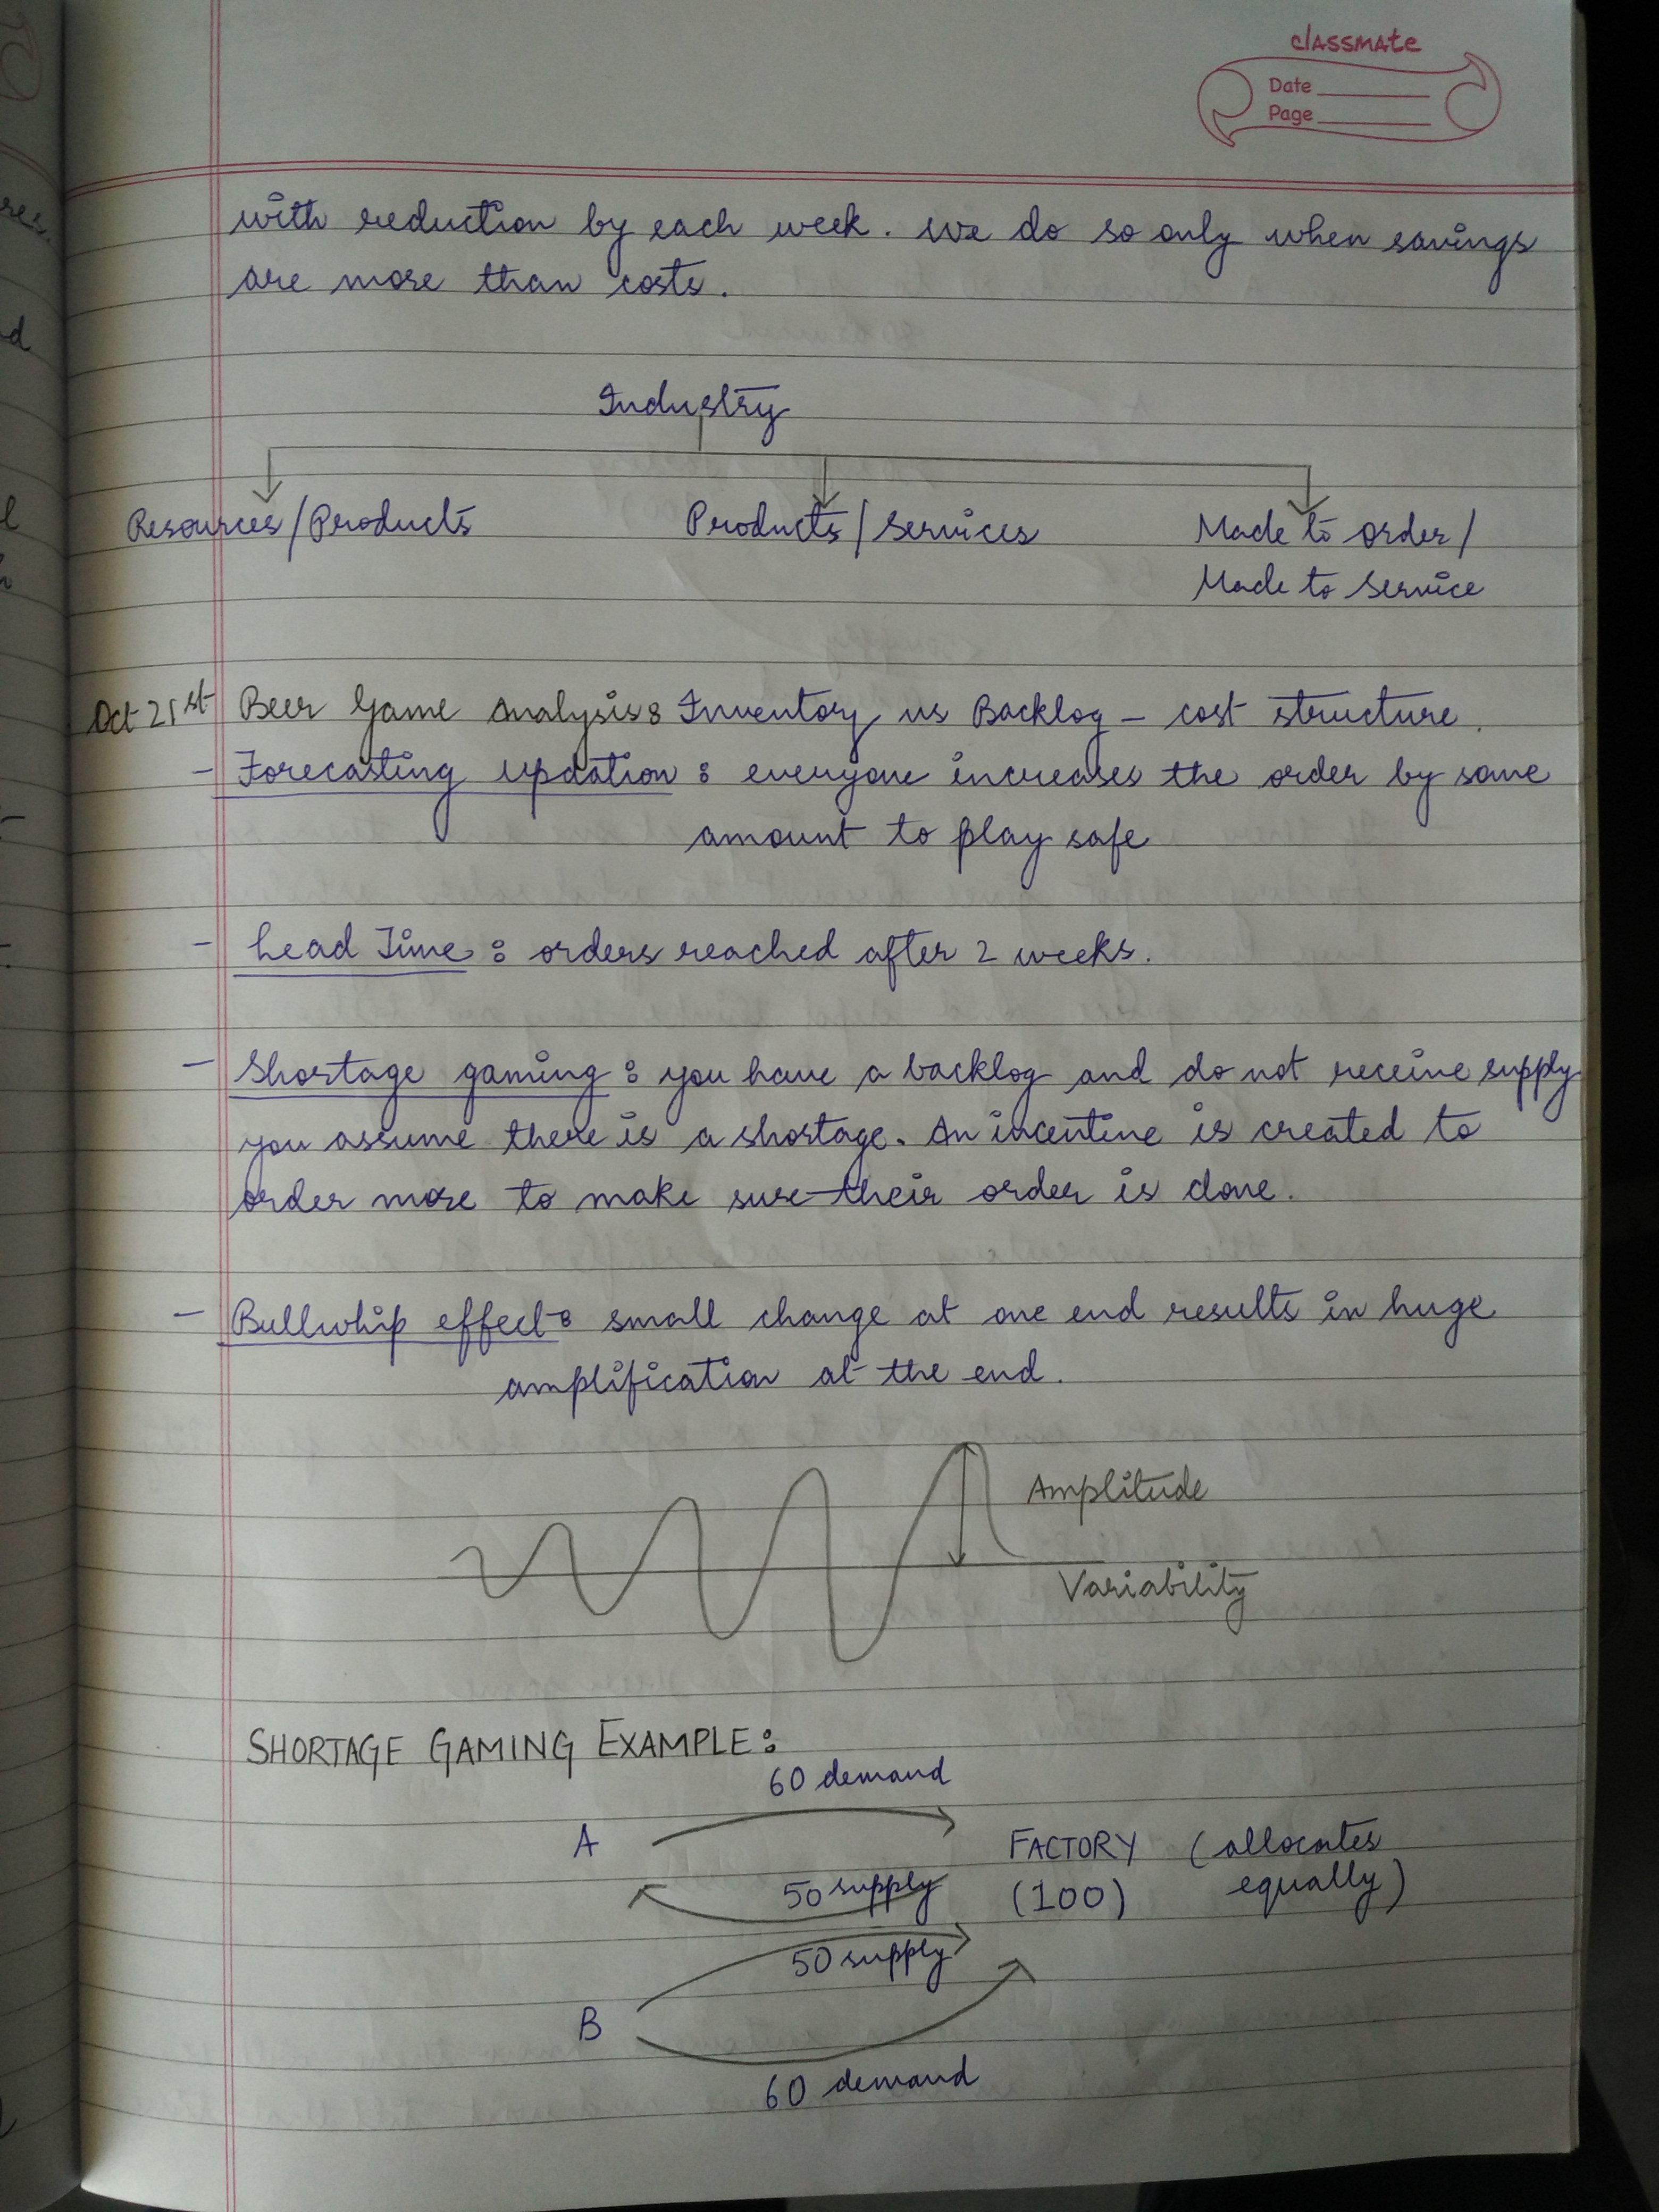 classmate
Date
Page
with reduction by each week. We do so only when savings
are more than costs.
Industry
Resources/Products Products/Services Made to order/
Made to service
Oct 21st Beer Game Analysis: Inventory vs Backlog - cost structure.
- Forecasting updation: everyone increases the order by some
amount to play safe
- Lead Time: orders reached after 2 weeks.
- Shortage gaming: you have a backlog and do not receive supply
you assume there is a shortage. An incentive is created to
order more to make sure their order is done.
- Bullwhip effect: small change at one end results in huge
amplification at the end.
Amplitude
Variability
SHORTAGE GAMING EXAMPLE:
60 demand
A FACTORY (allocates
50 supply (100) equally)
50 supply
B
60 demand